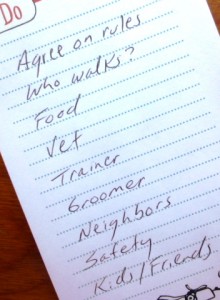 Do
Agree on rules
Who walks?
Food
Vet
Trainer
Groomer
Neighbors
Safety
Kids/Friends